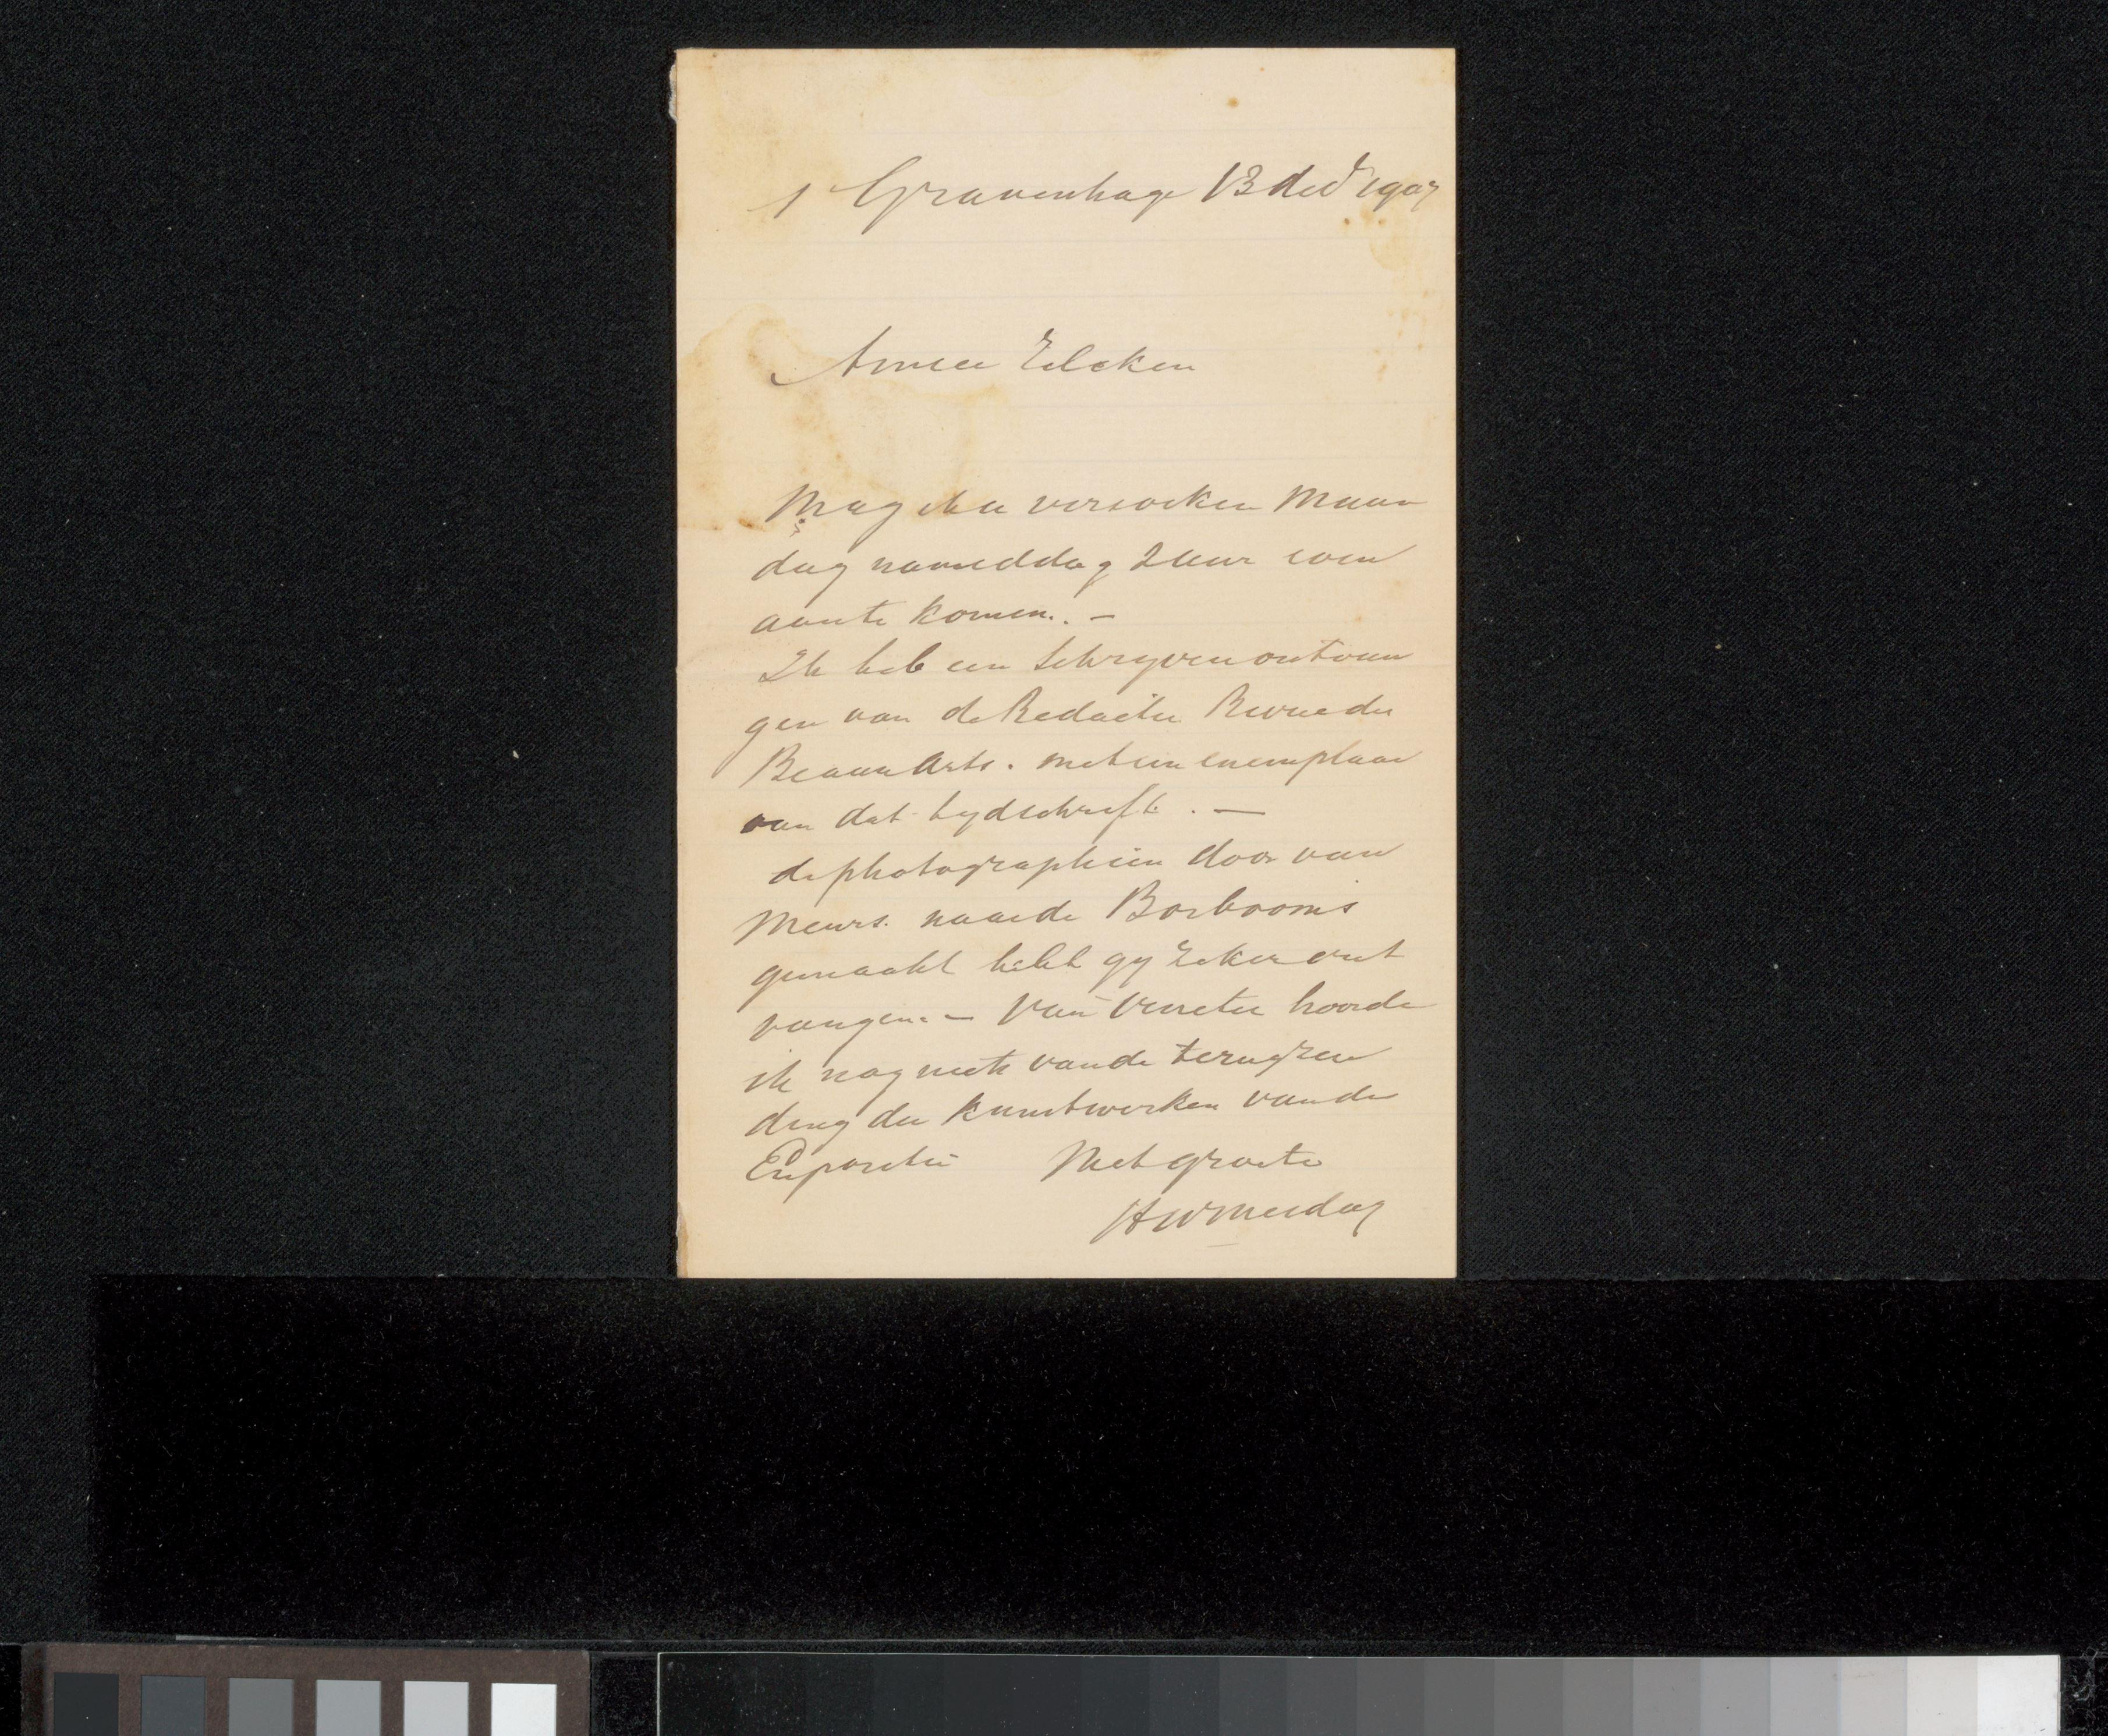 s Gravenhage 13 decr 1907
Amice Zilcken
Mag ik u verzoeken Maan
dag namiddag 2 uur even
aan te komen. —
Ik heb een schrijven ontvan
gen van de Redactie Revue des
Beaux Arts. met een exemplaar
van dat tydschrift. —
de photographien door van
Meurs. naar de Bosbooms
gemaakt hebt gy zeker ont
vangen. — Van Venetie hoorde
ik nog niets van de terugzen
ding der kunstwerken van de
Expositie Met groete
HW Mesdag